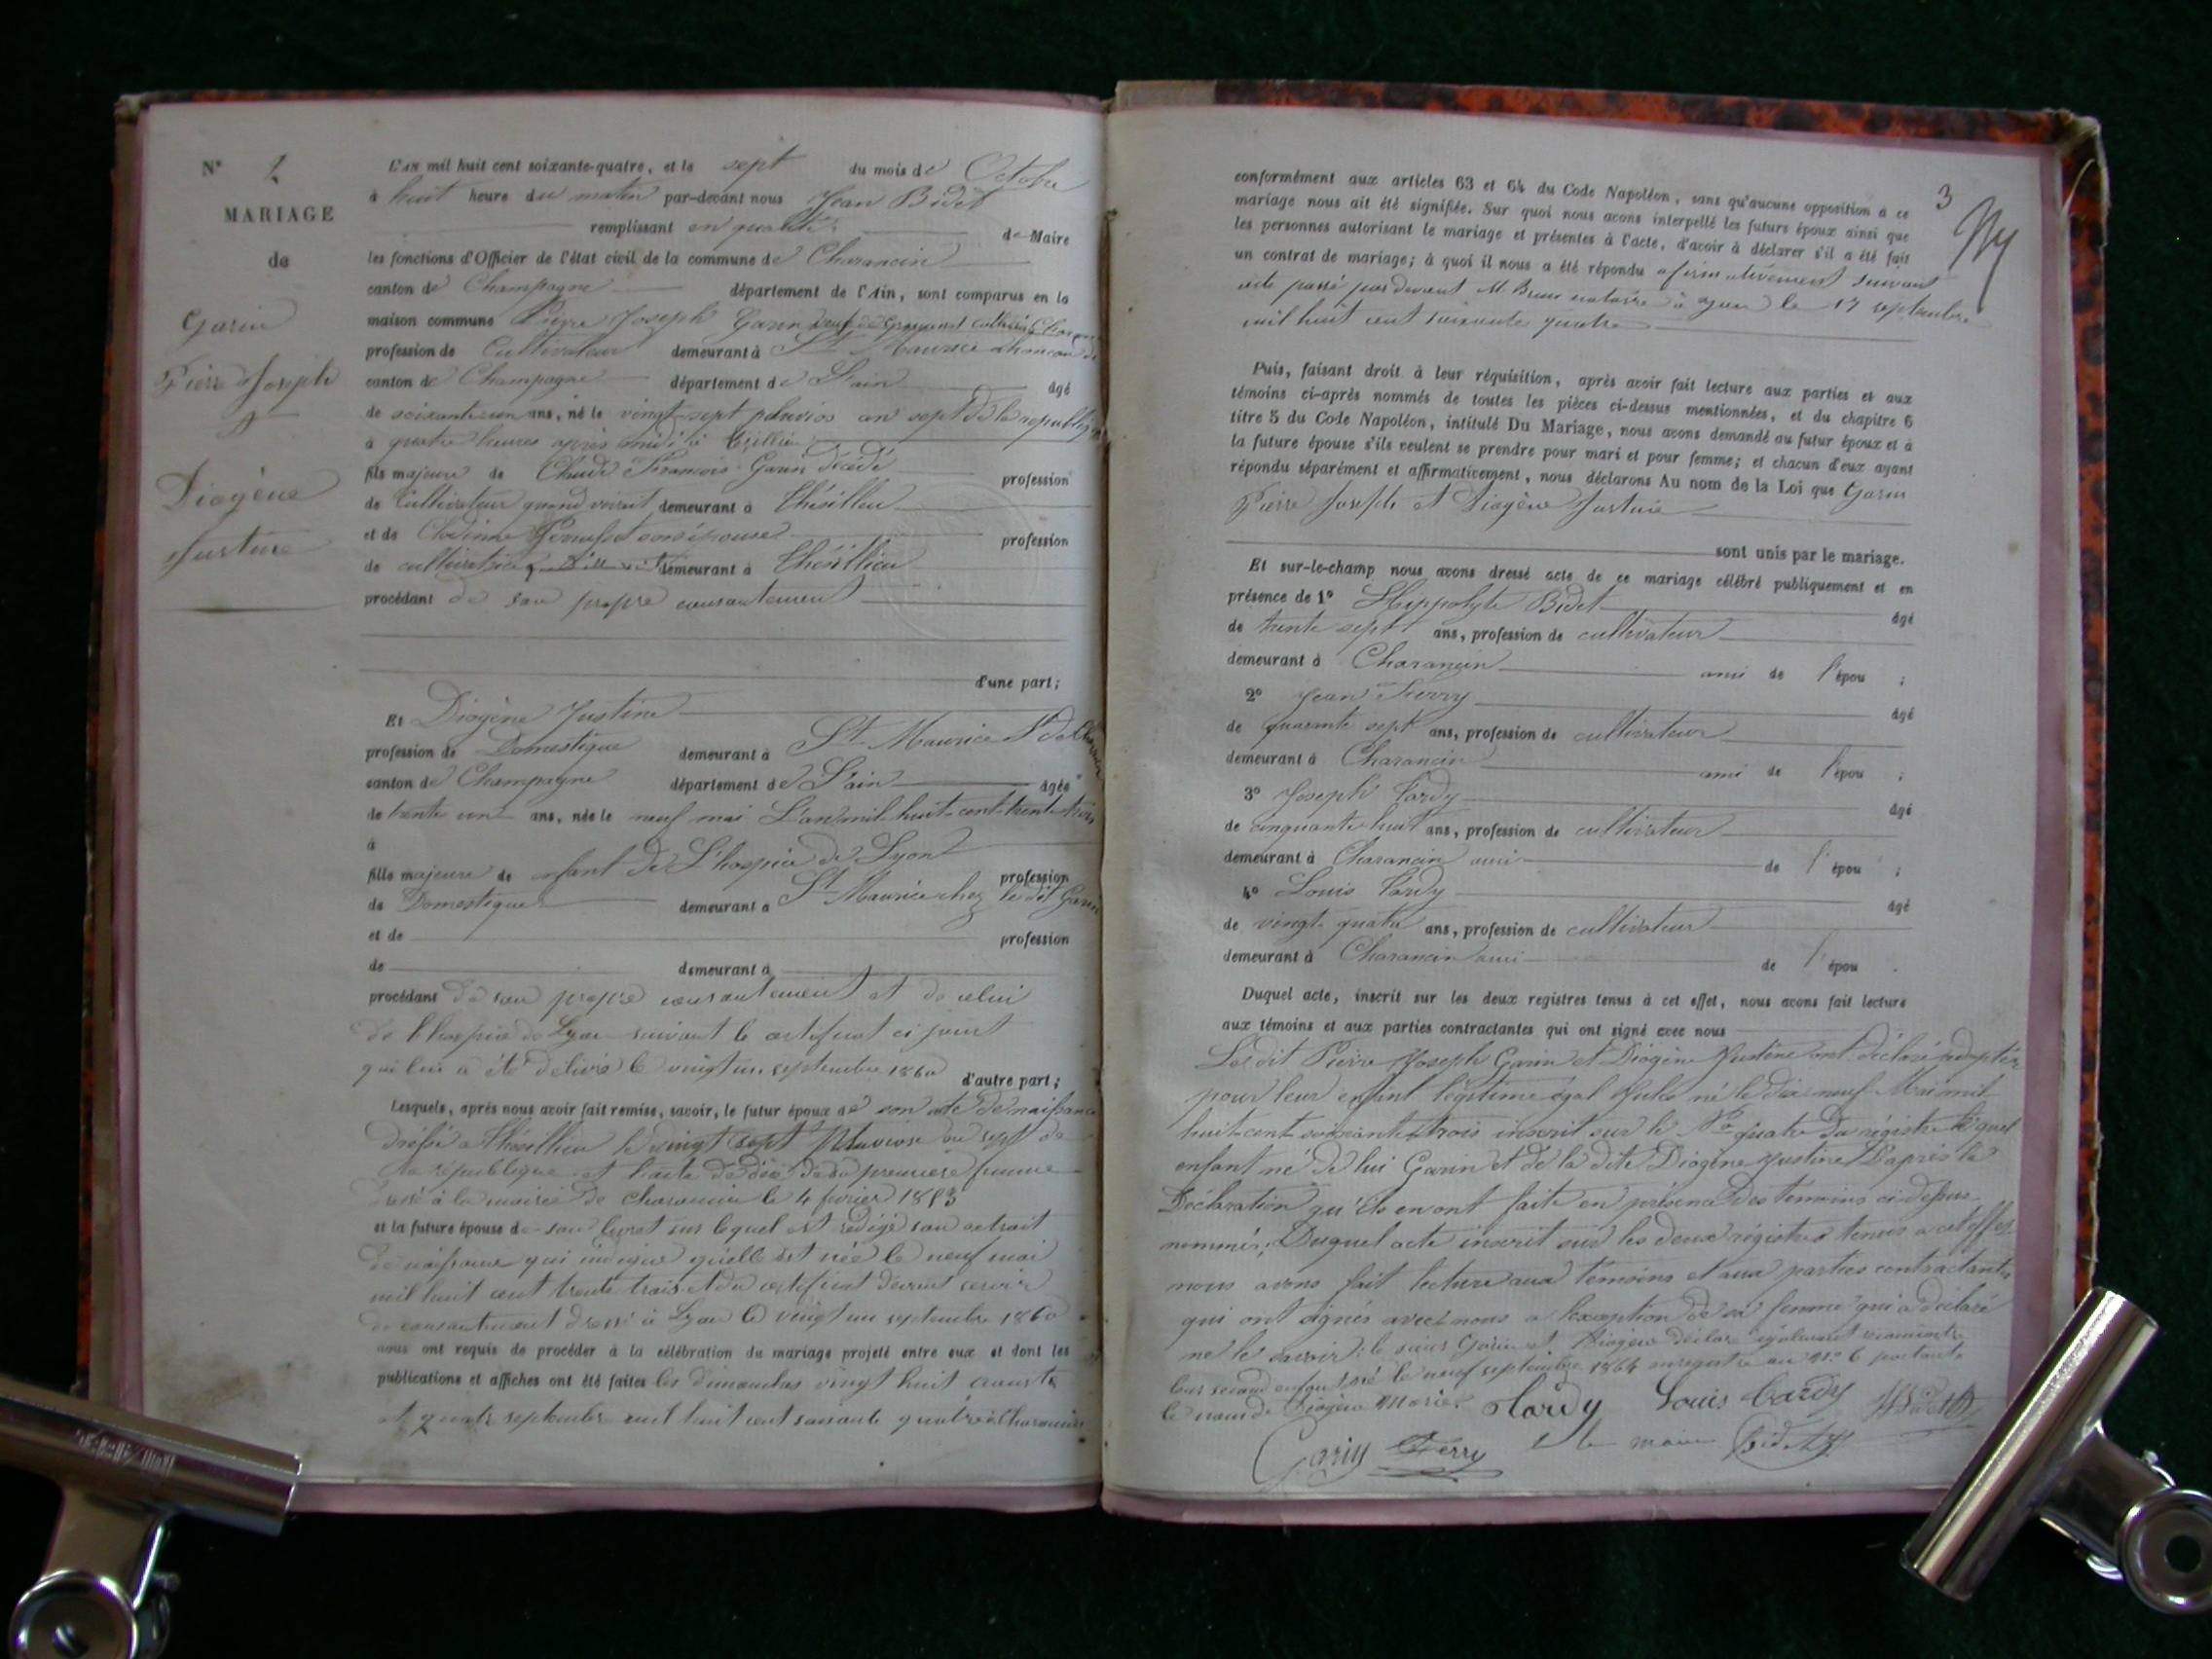 N° 2
MARIAGE
de
Garin
Pierre Joseph
Diogène
Justine
L'AN mil huit cent soixante-quatre, et le sept du mois de Octobre
à huit heure du matin par-devant nous Jean Bidet
remplissant en qualité de Maire
les fonctions d'Officier de l'état civil de la commune de Charancin
canton de Champagne département de l'Ain, sont comparus en la
maison commune Pierre Joseph Garin veuf de
profession de Cultivateur demeurant à St Maurice
canton de Champagne département de L'ain âgé
de soixante cinq ans, né le vingt-sept pluvios an sept de la republique
à quatre heures après midi à
fils majeure de Claude Francois Garin décédé profession
de Cultivateur quand vivait demeurant à Thésillieu
et de son épouse profession
de cultivatrice demeurant à Thésillieu
procédant de son propre consentement
d'une part;
Et Diogène Justine
profession de Domestique demeurant à St Maurice
canton de Champagne département de L'ain âgée
de trente un ans, née le neuf mai L'an mil huit-cent-trente trois
à
fille majeure de enfant de L'hospice de Lyon profession
de Domestique demeurant à St Maurice chez le dit Garin
et de profession
de demeurant à
procédant de son propre consentement et de celui
de l'hospice de Lyon suivant le certificat ci joint
qui lui a été délivré le vingt un septembre 1860 d'autre part;
Lesquels, après nous avoir fait remise, savoir, le futur époux de son acte de naissance
dressé a Thésillieu le vingt sept Pluviose an sept de
la république et l'acte de décé de sa premiere femme
dressé à la mairie de Charancin le 4 février 1853
et la future épouse de son livret sur lequel est rédigé son extrait
de naissance qui indique quelle est née le neuf mai
mil huit cent trente trois et du certificat devant servir
de consentement dressé à Lyon le vingt un septembre 1860
nous ont requis de procéder à la célébration du mariage projeté entre eux et dont les
publications et affiches ont été faites les dimanches vingt huit aoust
et quatre septembre mil huit cent soixante quatre à Charancin
3
conformément aux articles 63 et 64 du Code Napoléon, sans qu'aucune opposition à ce
mariage nous ait été signifiée. Sur quoi nous avons interpellé les futurs époux ainsi que
les personnes autorisant le mariage et présentes à l'acte, d'avoir à déclarer s'il a été fait
un contrat de mariage; à quoi il nous a été répondu afirmativement suivant
acte passé par devant M. notaire à le 17 septembre
mil huit cent soixante quatre
Puis, faisant droit à leur réquisition, après avoir fait lecture aux parties et aux
témoins ci-après nommés de toutes les pièces ci-dessus mentionnées, et du chapitre 6
titre 5 du Code Napoléon, intitulé Du Mariage, nous avons demandé au futur époux et à
la future épouse s'ils veulent se prendre pour mari et pour femme; et chacun d'eux ayant
répondu séparément et affirmativement, nous déclarons Au nom de la Loi que Garin
Pierre Joseph et Diogène Justine
sont unis par le mariage.
Et sur-le-champ nous avons dressé acte de ce mariage célébré publiquement et en
présence de 1° Hippolyte Bidet âgé
de trente sept ans, profession de cultivateur
demeurant à Charancin ami de l'épou ;
2° Jean Ferry âgé
de quarante sept ans, profession de cultivateur
demeurant à Charancin ami de l'épou ;
3° Joseph Tardy âgé
de cinquante huit ans, profession de cultivateur
demeurant à Charancin ami de l'épou ;
4° Louis Tardy âgé
de vingt quatre ans, profession de cultivateur
demeurant à Charancin ami de l'épou .
Duquel acte, inscrit sur les deux registres tenus à cet effet, nous avons fait lecture
aux témoins et aux parties contractantes qui ont signé avec nous
Les dit Pierre Joseph Garin et Diogène Justine ont déclaré adopter
pour leur enfant légitime né le dix neuf Mai mil
huit-cent soixante trois inscrit sur le No quatre du régistre lequel
enfant né de lui Garin et de la dite Diogène Justine D'après la
Déclaration qu'ils en ont faite en présence des temoins ci-dessus
nommés; Duquel acte inscrit sur les deux régistres tenus a cet effet
nous avons fait lecture aux temoins et aux parties contractantes
qui ont signés avec nous a l'exception de sa femme qui a déclaré
ne le savoir; le sieur Garin et Diogène déclare également reconnaitre
leur second enfant né le neuf septembre 1864 enregistré au N° 6 portant
le nom de Diogène Marie.
Tardy Louis Tardy H Bidet
Garin Ferry le maire Bidet